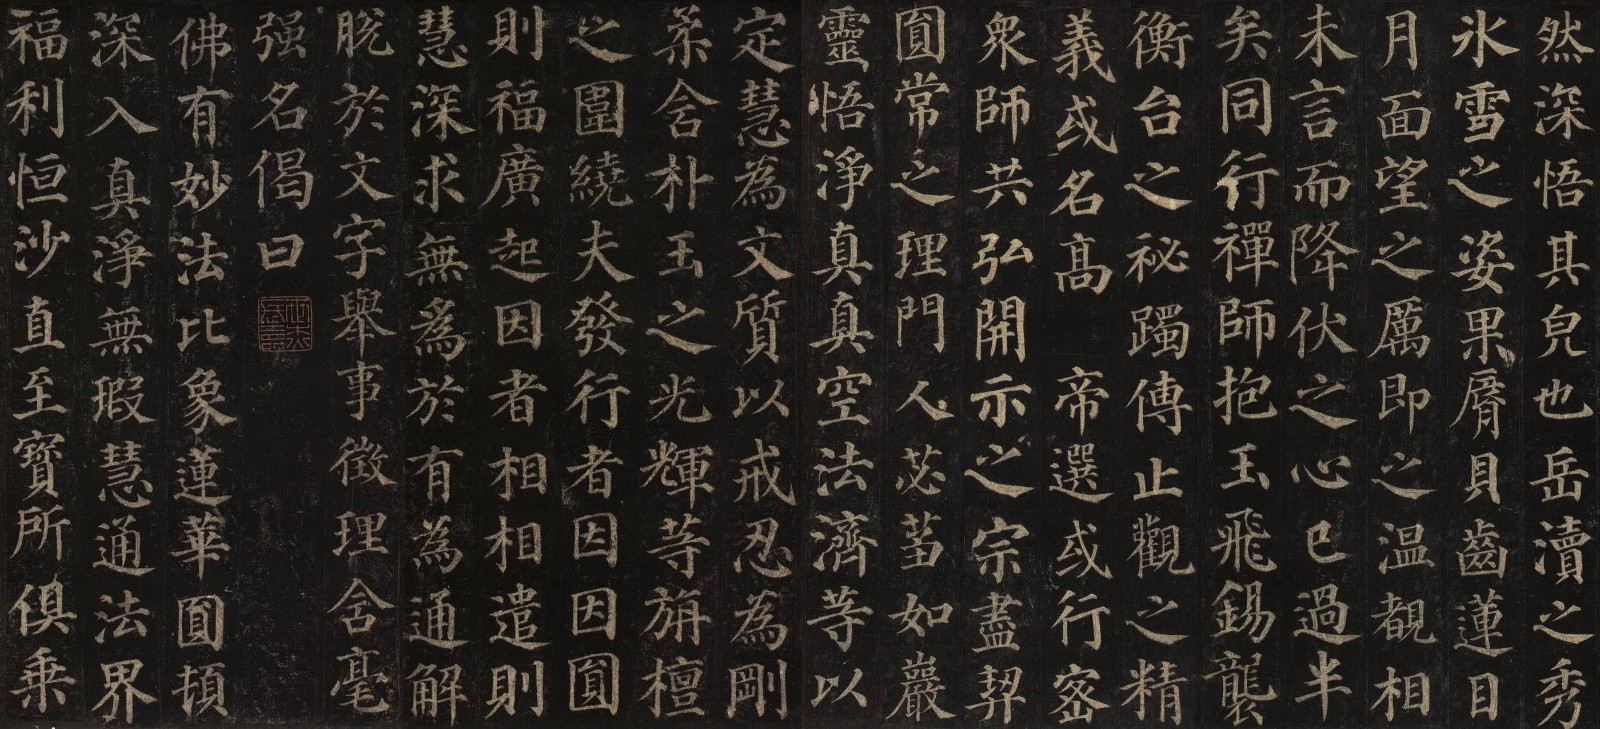 然深悟其皃也岳瀆之秀
氷雪之姿果脣貝齒蓮目
月面望之厲即之温覩相
未言而降伏之心已過半
矣同行禪師抱玉飛錫襲
衡台之祕躅傳止觀之精
義或名高 帝選或行密
衆師共弘開示之宗盡契
圎常之理門人苾蒭如巖
靈悟淨真真空法濟等以
定慧為文質以戒忍為剛
柔含朴玉之光輝等旃檀
之圍繞夫發行者因因圎
則福廣起因者相相遣則
慧深求無爲於有為通解
脫於文字舉事徵理含毫
强名偈曰
佛有妙法比象蓮華圎頓
深入真淨無瑕慧通法界
福利恒沙直至寶所俱乘